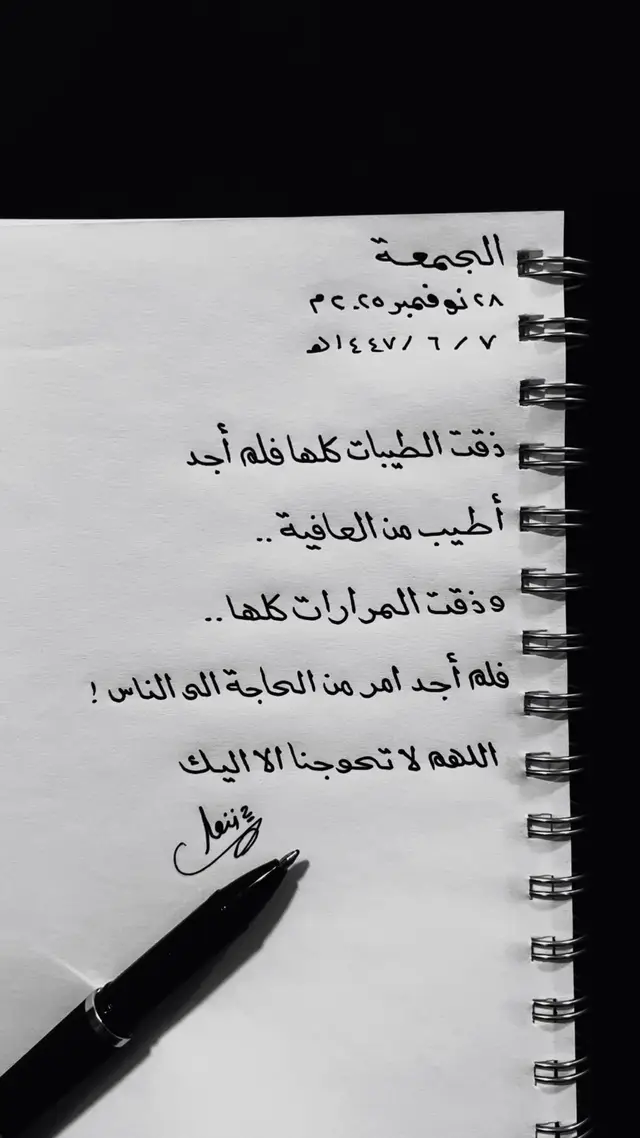 الجمعة
٢٨ نوفمبر ٢٠٢٥ م
٧ / ٦ / ١٤٤٧هـ
ذقت الطيبات كلها فلم أجد
أطيب من العافية ..
وذقت المرارات كلها ..
فلم أجد امر من الحاجة الى الناس !
اللهم لا تحوجنا الا اليك